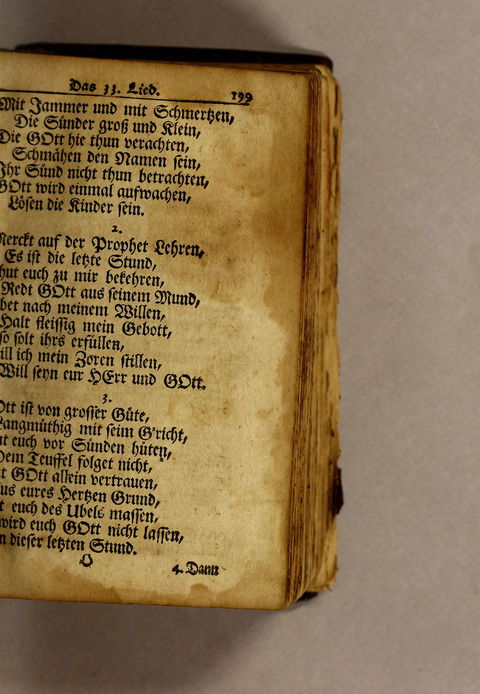 Das 33. Lied. 199
Mit Jammer und mit Schmertzen,
Die Sünder groß und Klein,
Die GOtt hie thun verachten,
Schmähen den Namen sein,
Ihr Sünd nicht thun betrachten,
GOtt wird einmal aufwachen,
Lösen die Kinder sein.
2.
Merckt auf der Prophet Lehren,
Es ist die letzte Stund,
euch zu mir bekehren,
Redt GOtt aus seinem Mund,
nach meinem Willen,
Halt fleissig mein Gebott,
solt ihrs erfüllen,
ich mein Zoren stillen,
Will seyn eur HErr und GOtt.
3.
GOtt ist von grosser Güte,
Langmüthig mit seim G'richt,
euch vor Sünden hüten,
Dem Teuffel folget nicht,
GOtt allein vertrauen,
Aus eures Hertzen Grund,
euch des Ubels massen,
wird euch GOtt nicht lassen,
dieser letzten Stund.
4. Dann